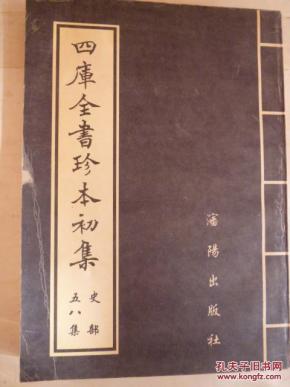 四庫全書珍本初集
史部
五八集
瀋陽出版社
孔夫子旧书网